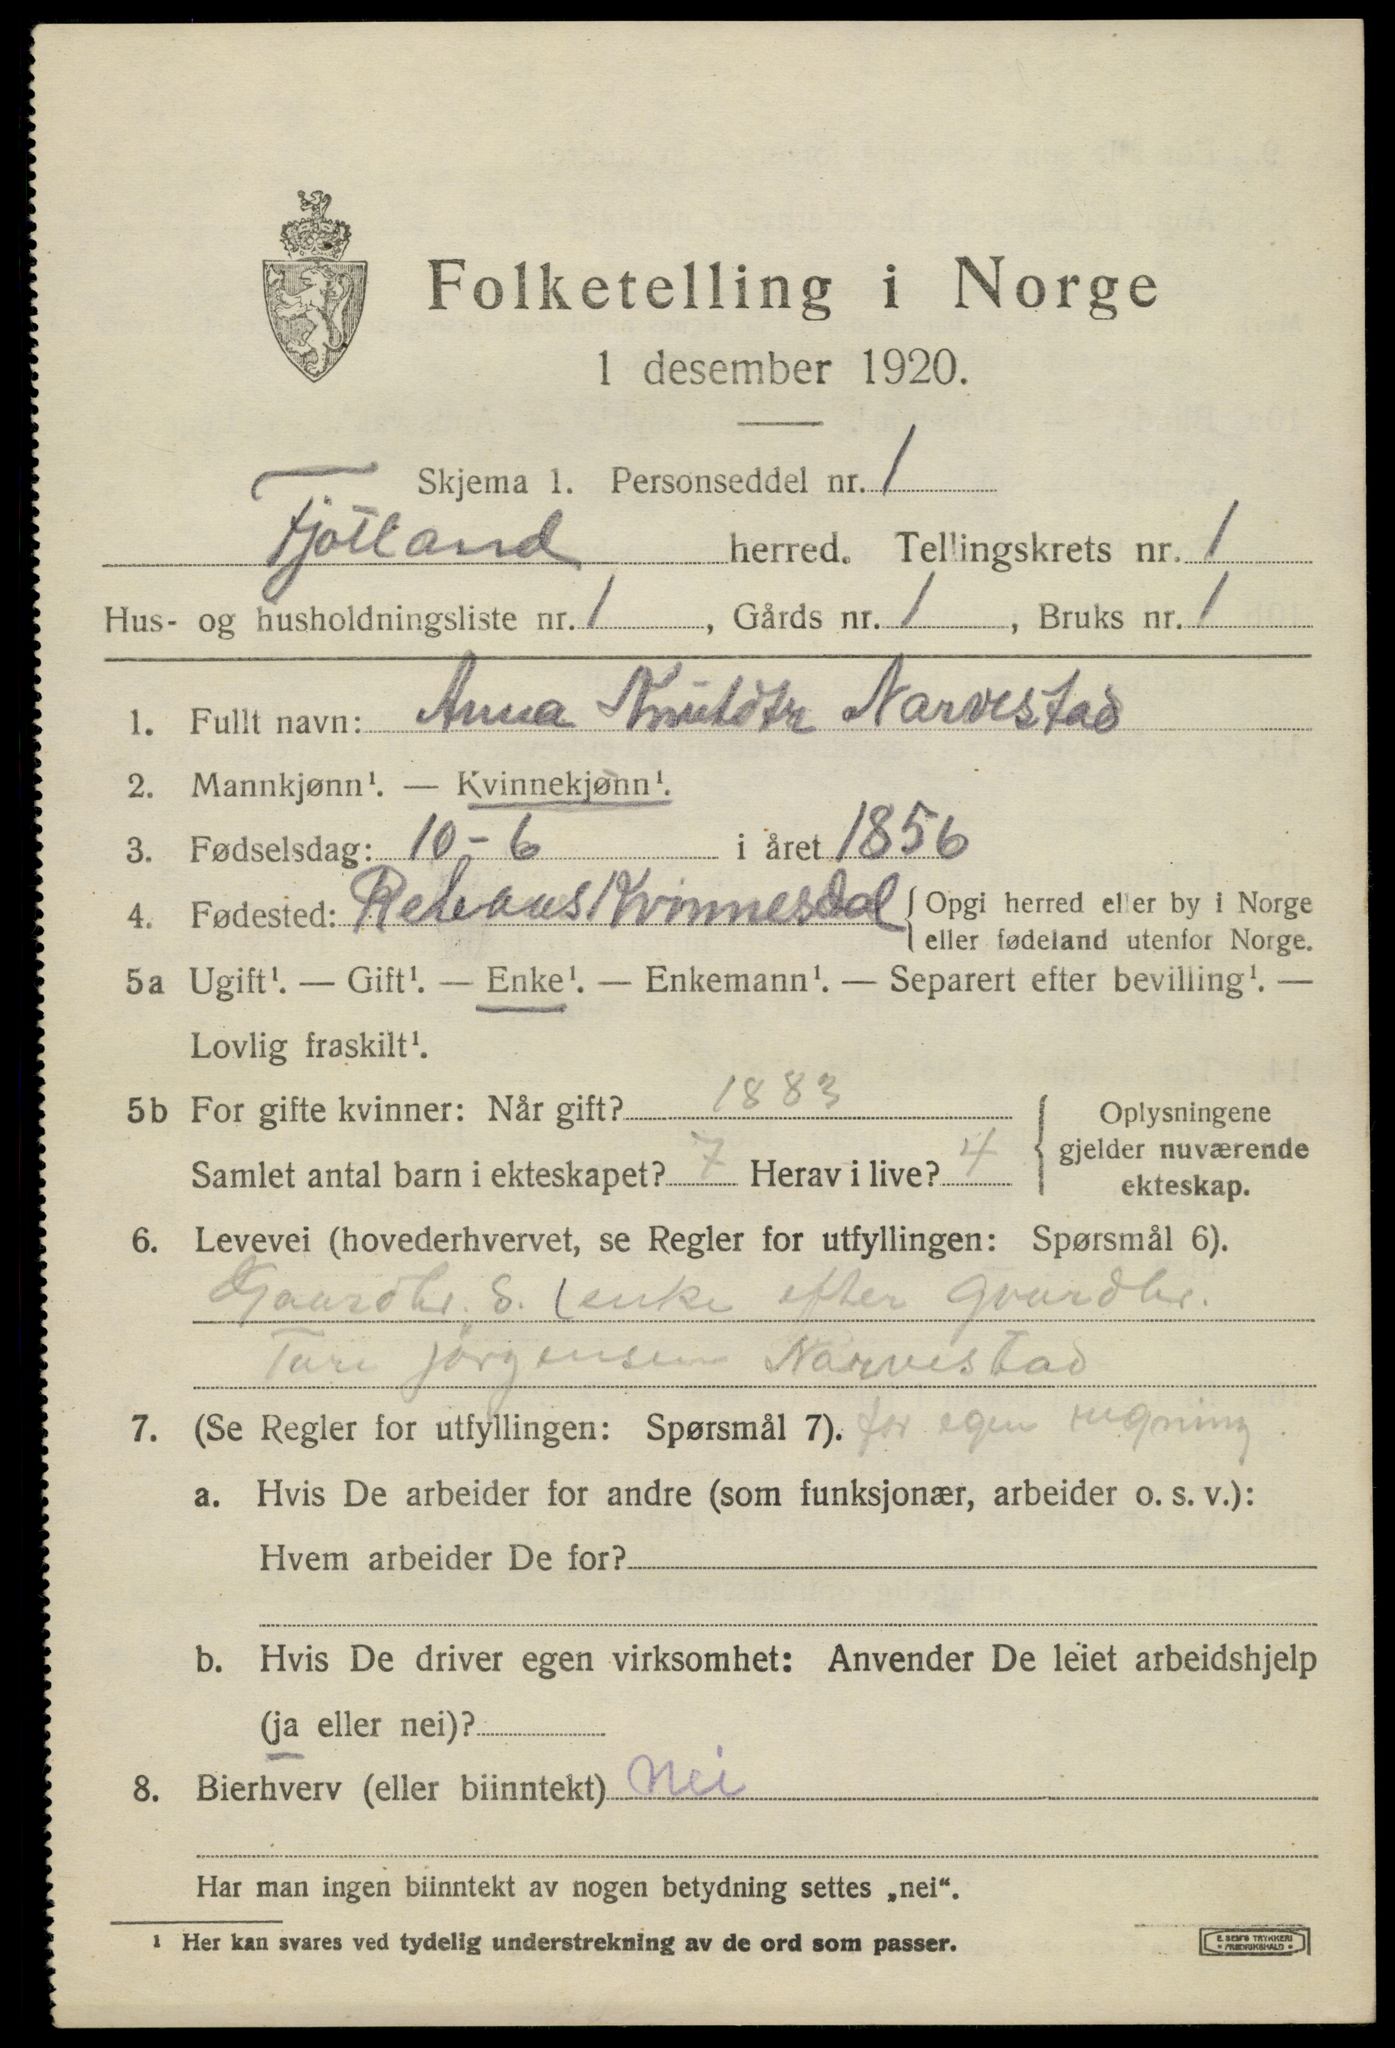 Folketelling i Norge
1 desember 1920.
Skjema 1. Personseddel nr. 1
Fjotland herred. Tellingskrets nr. 1
Hus- og husholdningsliste nr. 1, Gårds nr. 1, Bruks nr. 1
1. Fullt navn: Anna Knutdtr Narvestad
2. Mannkjønn¹. — Kvinnekjønn¹.
3. Fødselsdag: 10-6 i året 1856
4. Fødested: Kvinnesdal { Opgi herred eller by i Norge
eller fødeland utenfor Norge.
5a Ugift¹. — Gift¹. — Enke¹. — Enkemann¹. — Separert efter bevilling¹. —
Lovlig fraskilt¹.
5b For gifte kvinner: Når gift? 1883
Samlet antal barn i ekteskapet? 7 Herav i live? 4
{ Oplysningene
gjelder nuværende
ekteskap.
6. Levevei (hovederhvervet, se Regler for utfyllingen: Spørsmål 6).
Gaardbr. S. (enke efter Gaardbr.
Jørgensen Narvestad
7. (Se Regler for utfyllingen: Spørsmål 7). for egen regning
a. Hvis De arbeider for andre (som funksjonær, arbeider o. s. v.):
Hvem arbeider De for?
b. Hvis De driver egen virksomhet: Anvender De leiet arbeidshjelp
(ja eller nei)?
8. Bierhverv (eller biinntekt) Nei
Har man ingen biinntekt av nogen betydning settes „nei“.
¹ Her kan svares ved tydelig understrekning av de ord som passer.
E. SEM'S TRYKKERI
* FREDRIKSHALD *